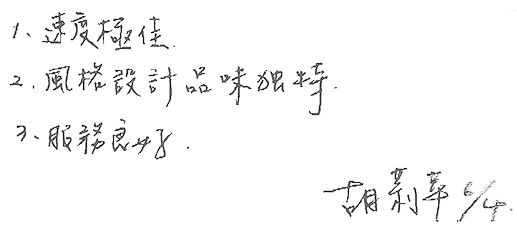 1、速度極佳.
2.風格設計品味独特.
3、服務良好.
胡莉華 6/4.